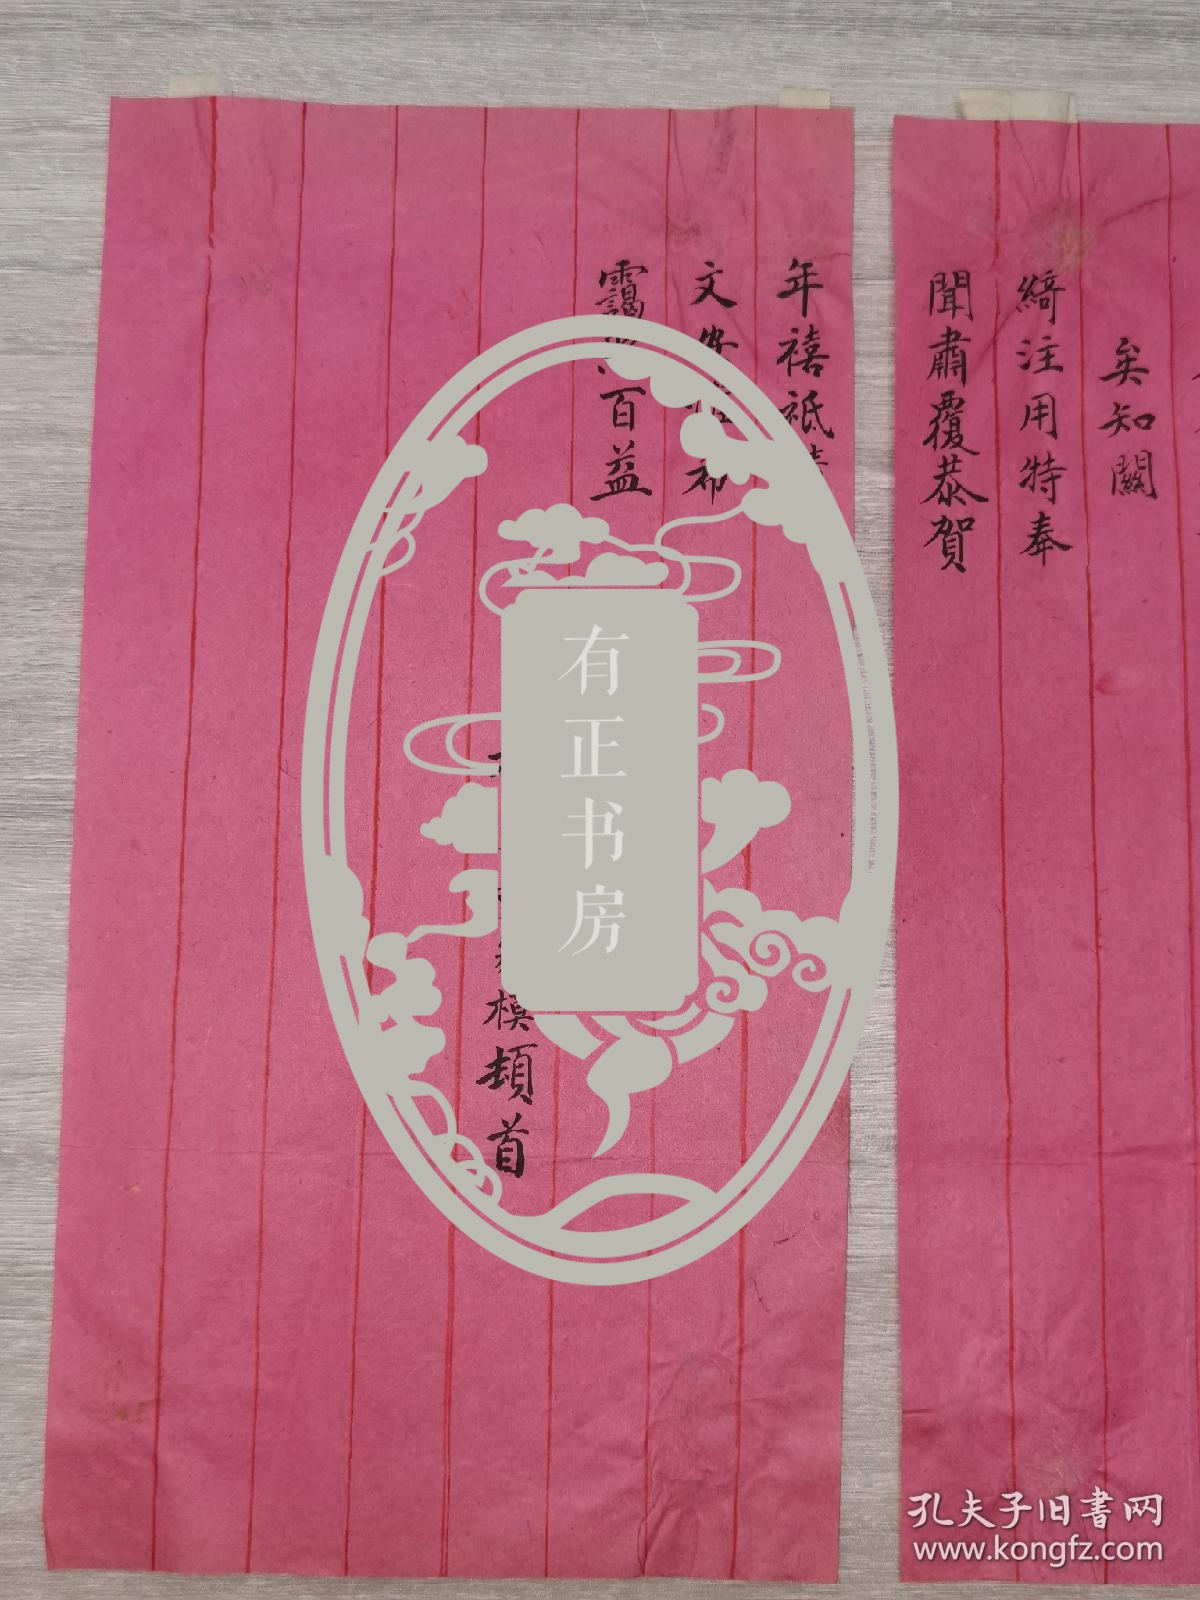 矣知關
綺注用特奉
聞肅覆恭賀
年禧祗請
文安維希
靄照百益
模頓首
有正书房
孔夫子旧书网
www.kongfz.com